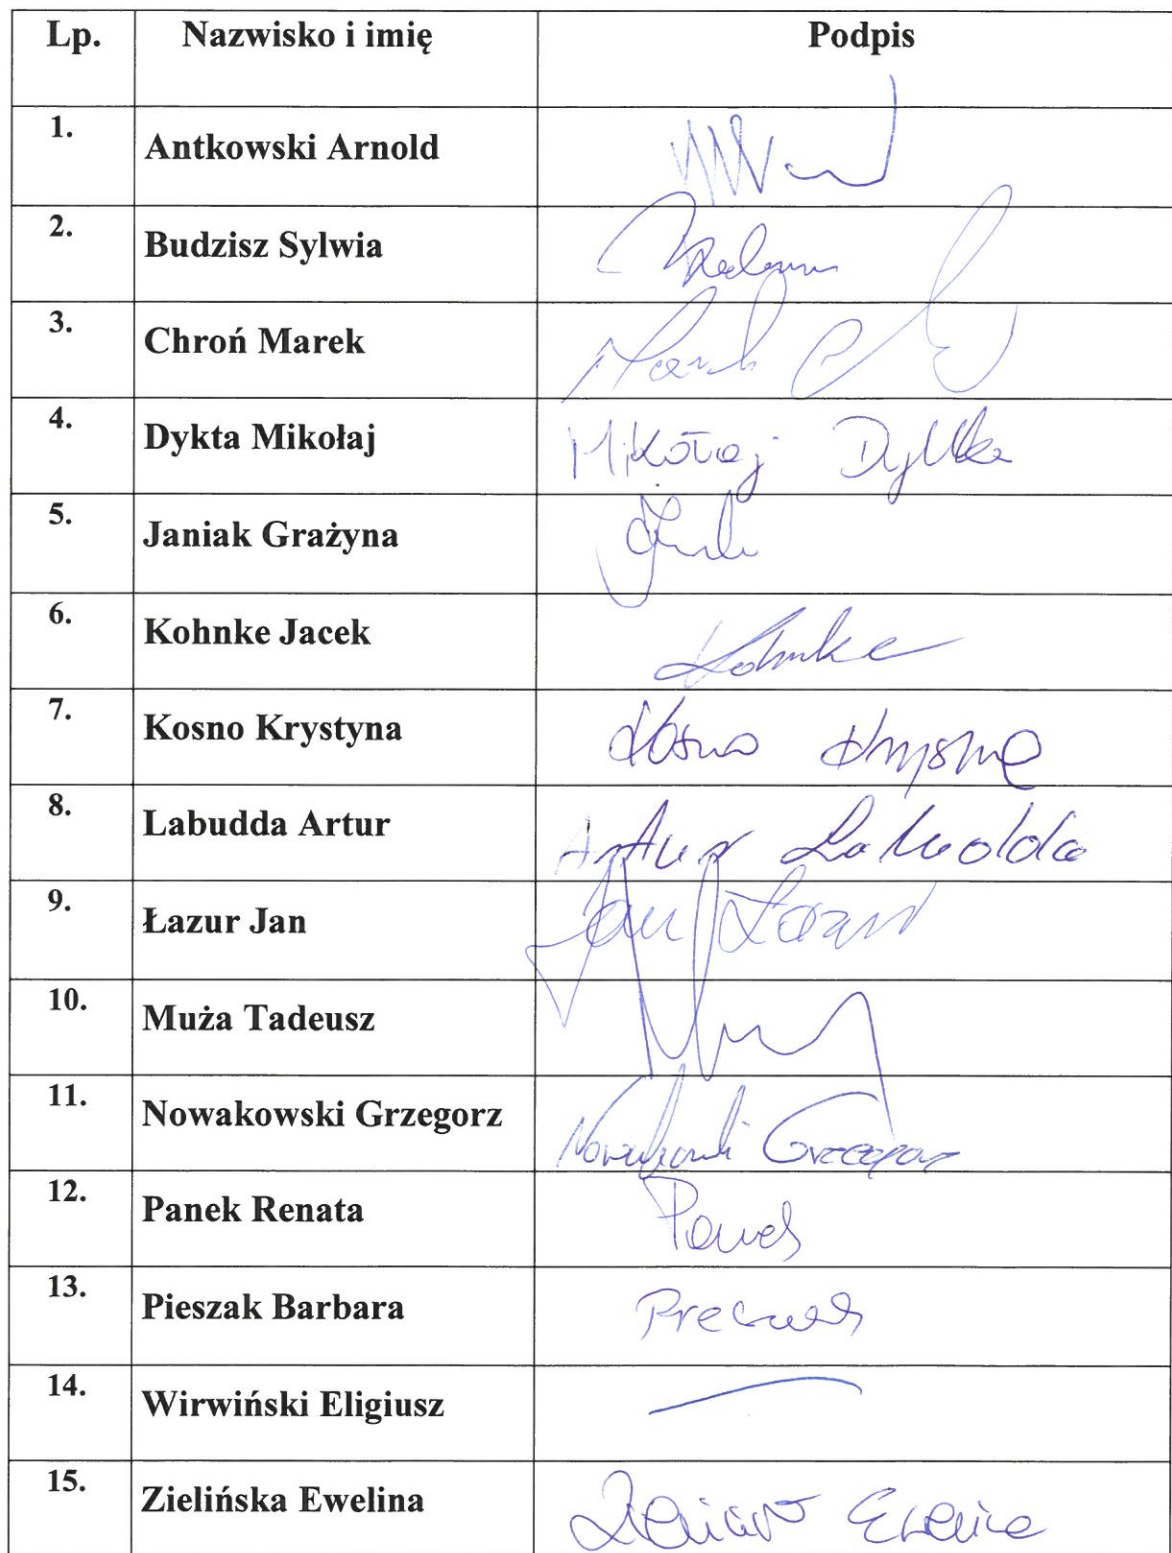 Lp. Nazwisko i imię Podpis
1. Antkowski Arnold
2. Budzisz Sylwia
3. Chroń Marek Marek
4. Dykta Mikołaj Mikołaj Dykta
5. Janiak Grażyna
6. Kohnke Jacek Kohnke
7. Kosno Krystyna Kosno Krystyna
8. Labudda Artur Artur Labudda
9. Łazur Jan Jan Łazur
10. Muża Tadeusz
11. Nowakowski Grzegorz Nowakowski Grzegorz
12. Panek Renata Panek
13. Pieszak Barbara
14. Wirwiński Eligiusz
15. Zielińska Ewelina Ewelina